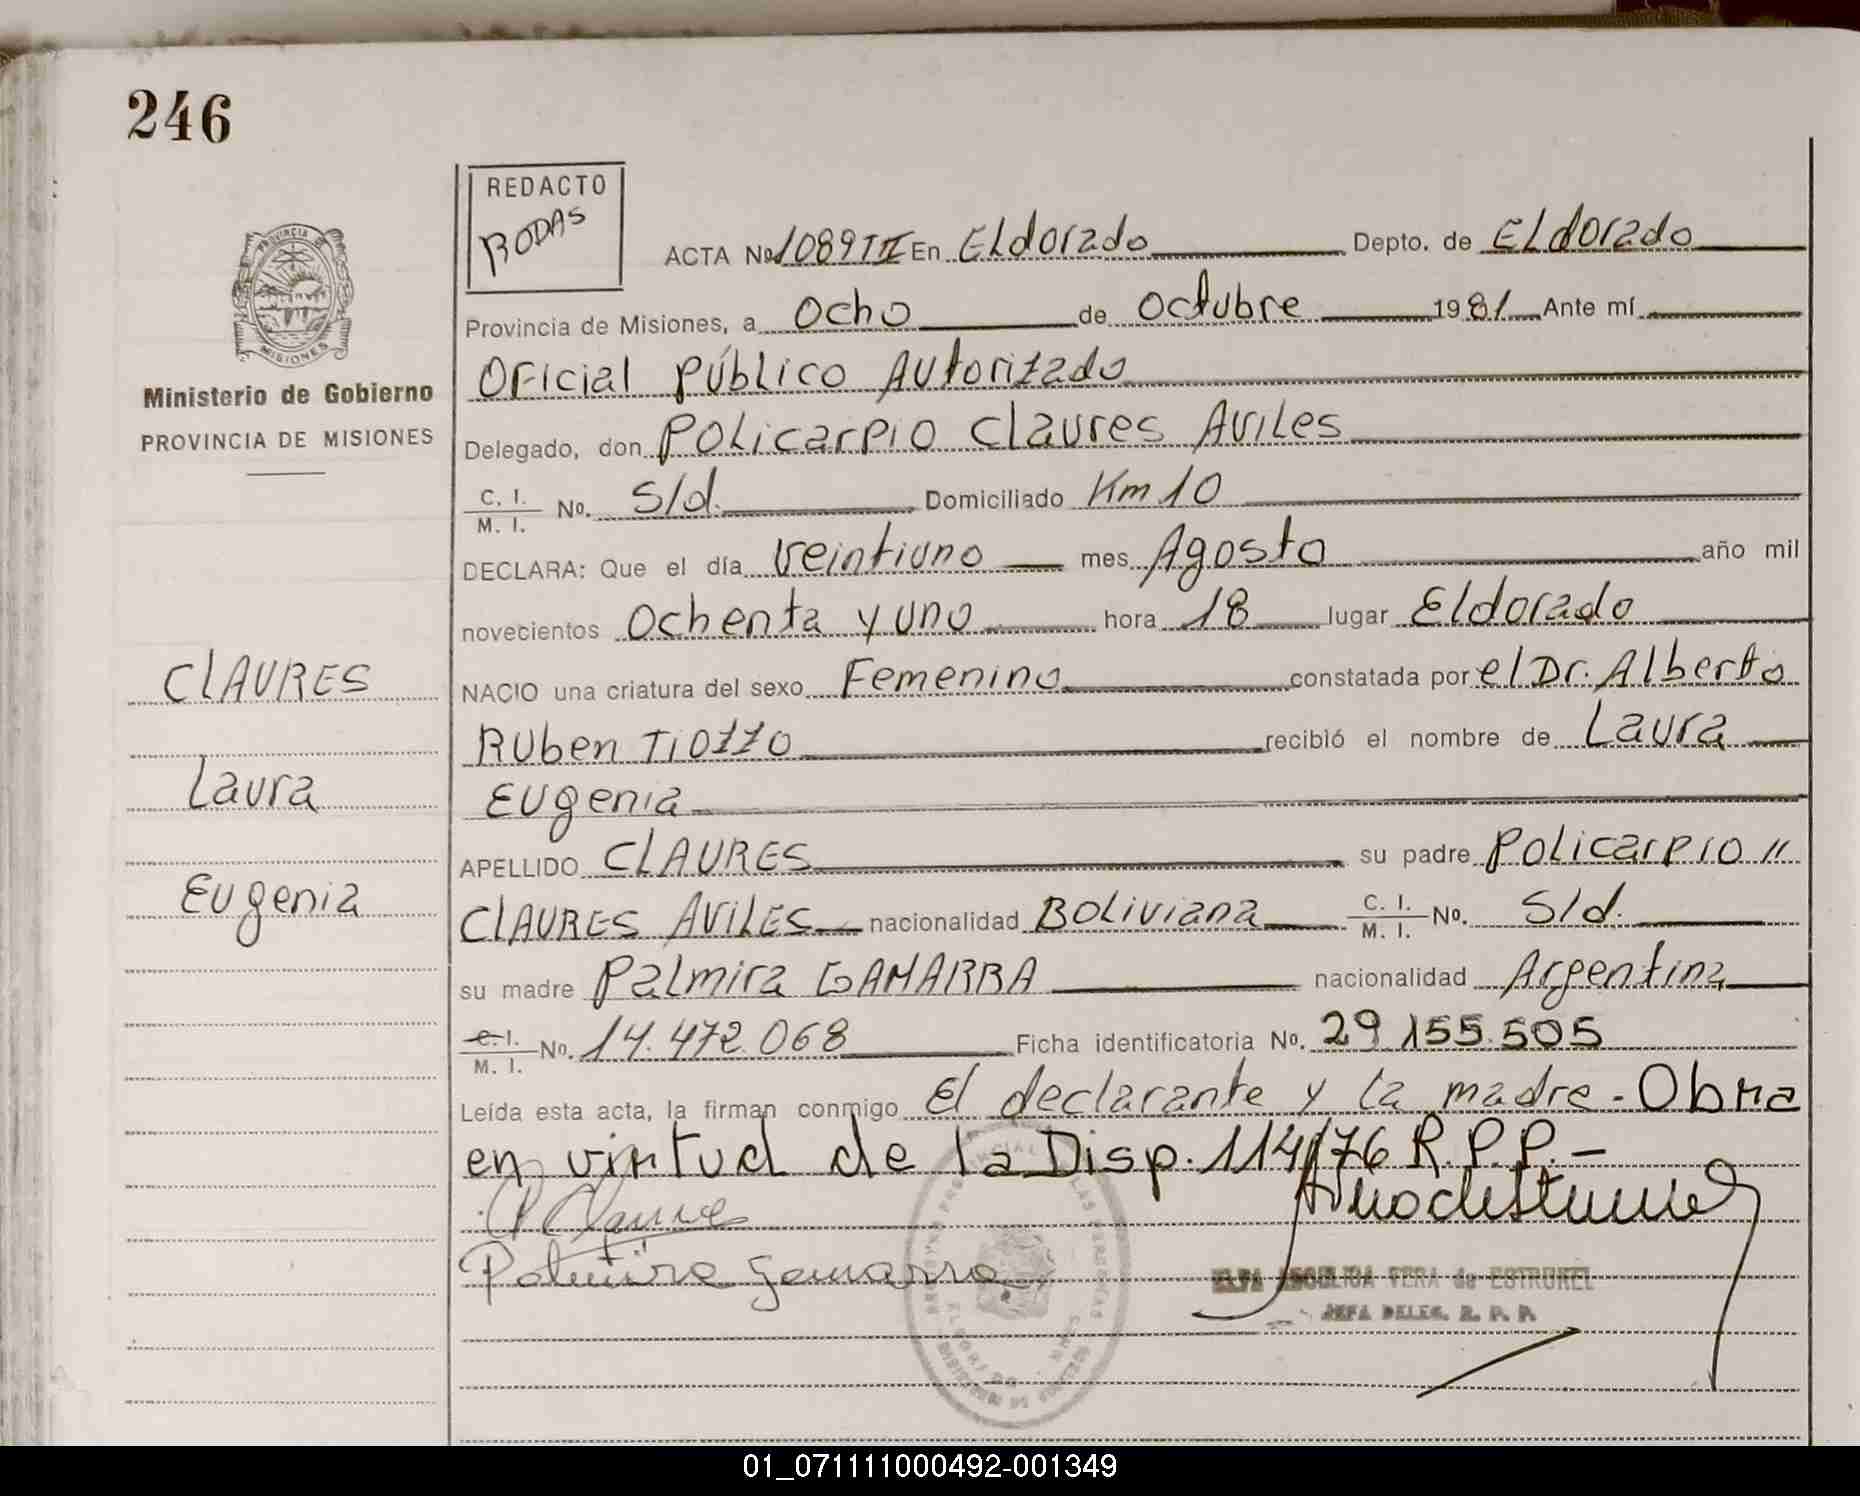 246
REDACTO
RODAS
ACTA Nº 1089 III En Eldorado Depto. de Eldorado
Provincia de Misiones, a Ocho de Octubre 1981 Ante mí
Oficial Público Autorizado
Delegado, don Policarpio Claures Aviles
C. I. / M. I. Nº. S/d. Domiciliado Km 10
DECLARA: Que el día veintiuno mes Agosto año mil
novecientos Ochenta y uno hora 18 lugar Eldorado
NACIO una criatura del sexo Femenino constatada por el Dr. Alberto
Ruben Tiozzo recibió el nombre de Laura
Eugenia
APELLIDO CLAURES su padre Policarpio "
CLAURES AVILES nacionalidad Boliviana C. I. / M. I. Nº. S/d.
su madre Palmira GAMARRA nacionalidad Argentina
C. I. / M. I. Nº. 14.472.068 Ficha identificatoria Nº. 29.155.505
Leída esta acta, la firman conmigo El declarante y la madre.- Obra
en virtud de la Disp. 114/76 R.P.P.-
P Claures
Palmira Gamarra
VERA de ESTRUMEL
JEFA DELEG. R. P. P.
PROVINCIA DE
MISIONES
Ministerio de Gobierno
PROVINCIA DE MISIONES
CLAURES
Laura
Eugenia
01_071111000492-001349